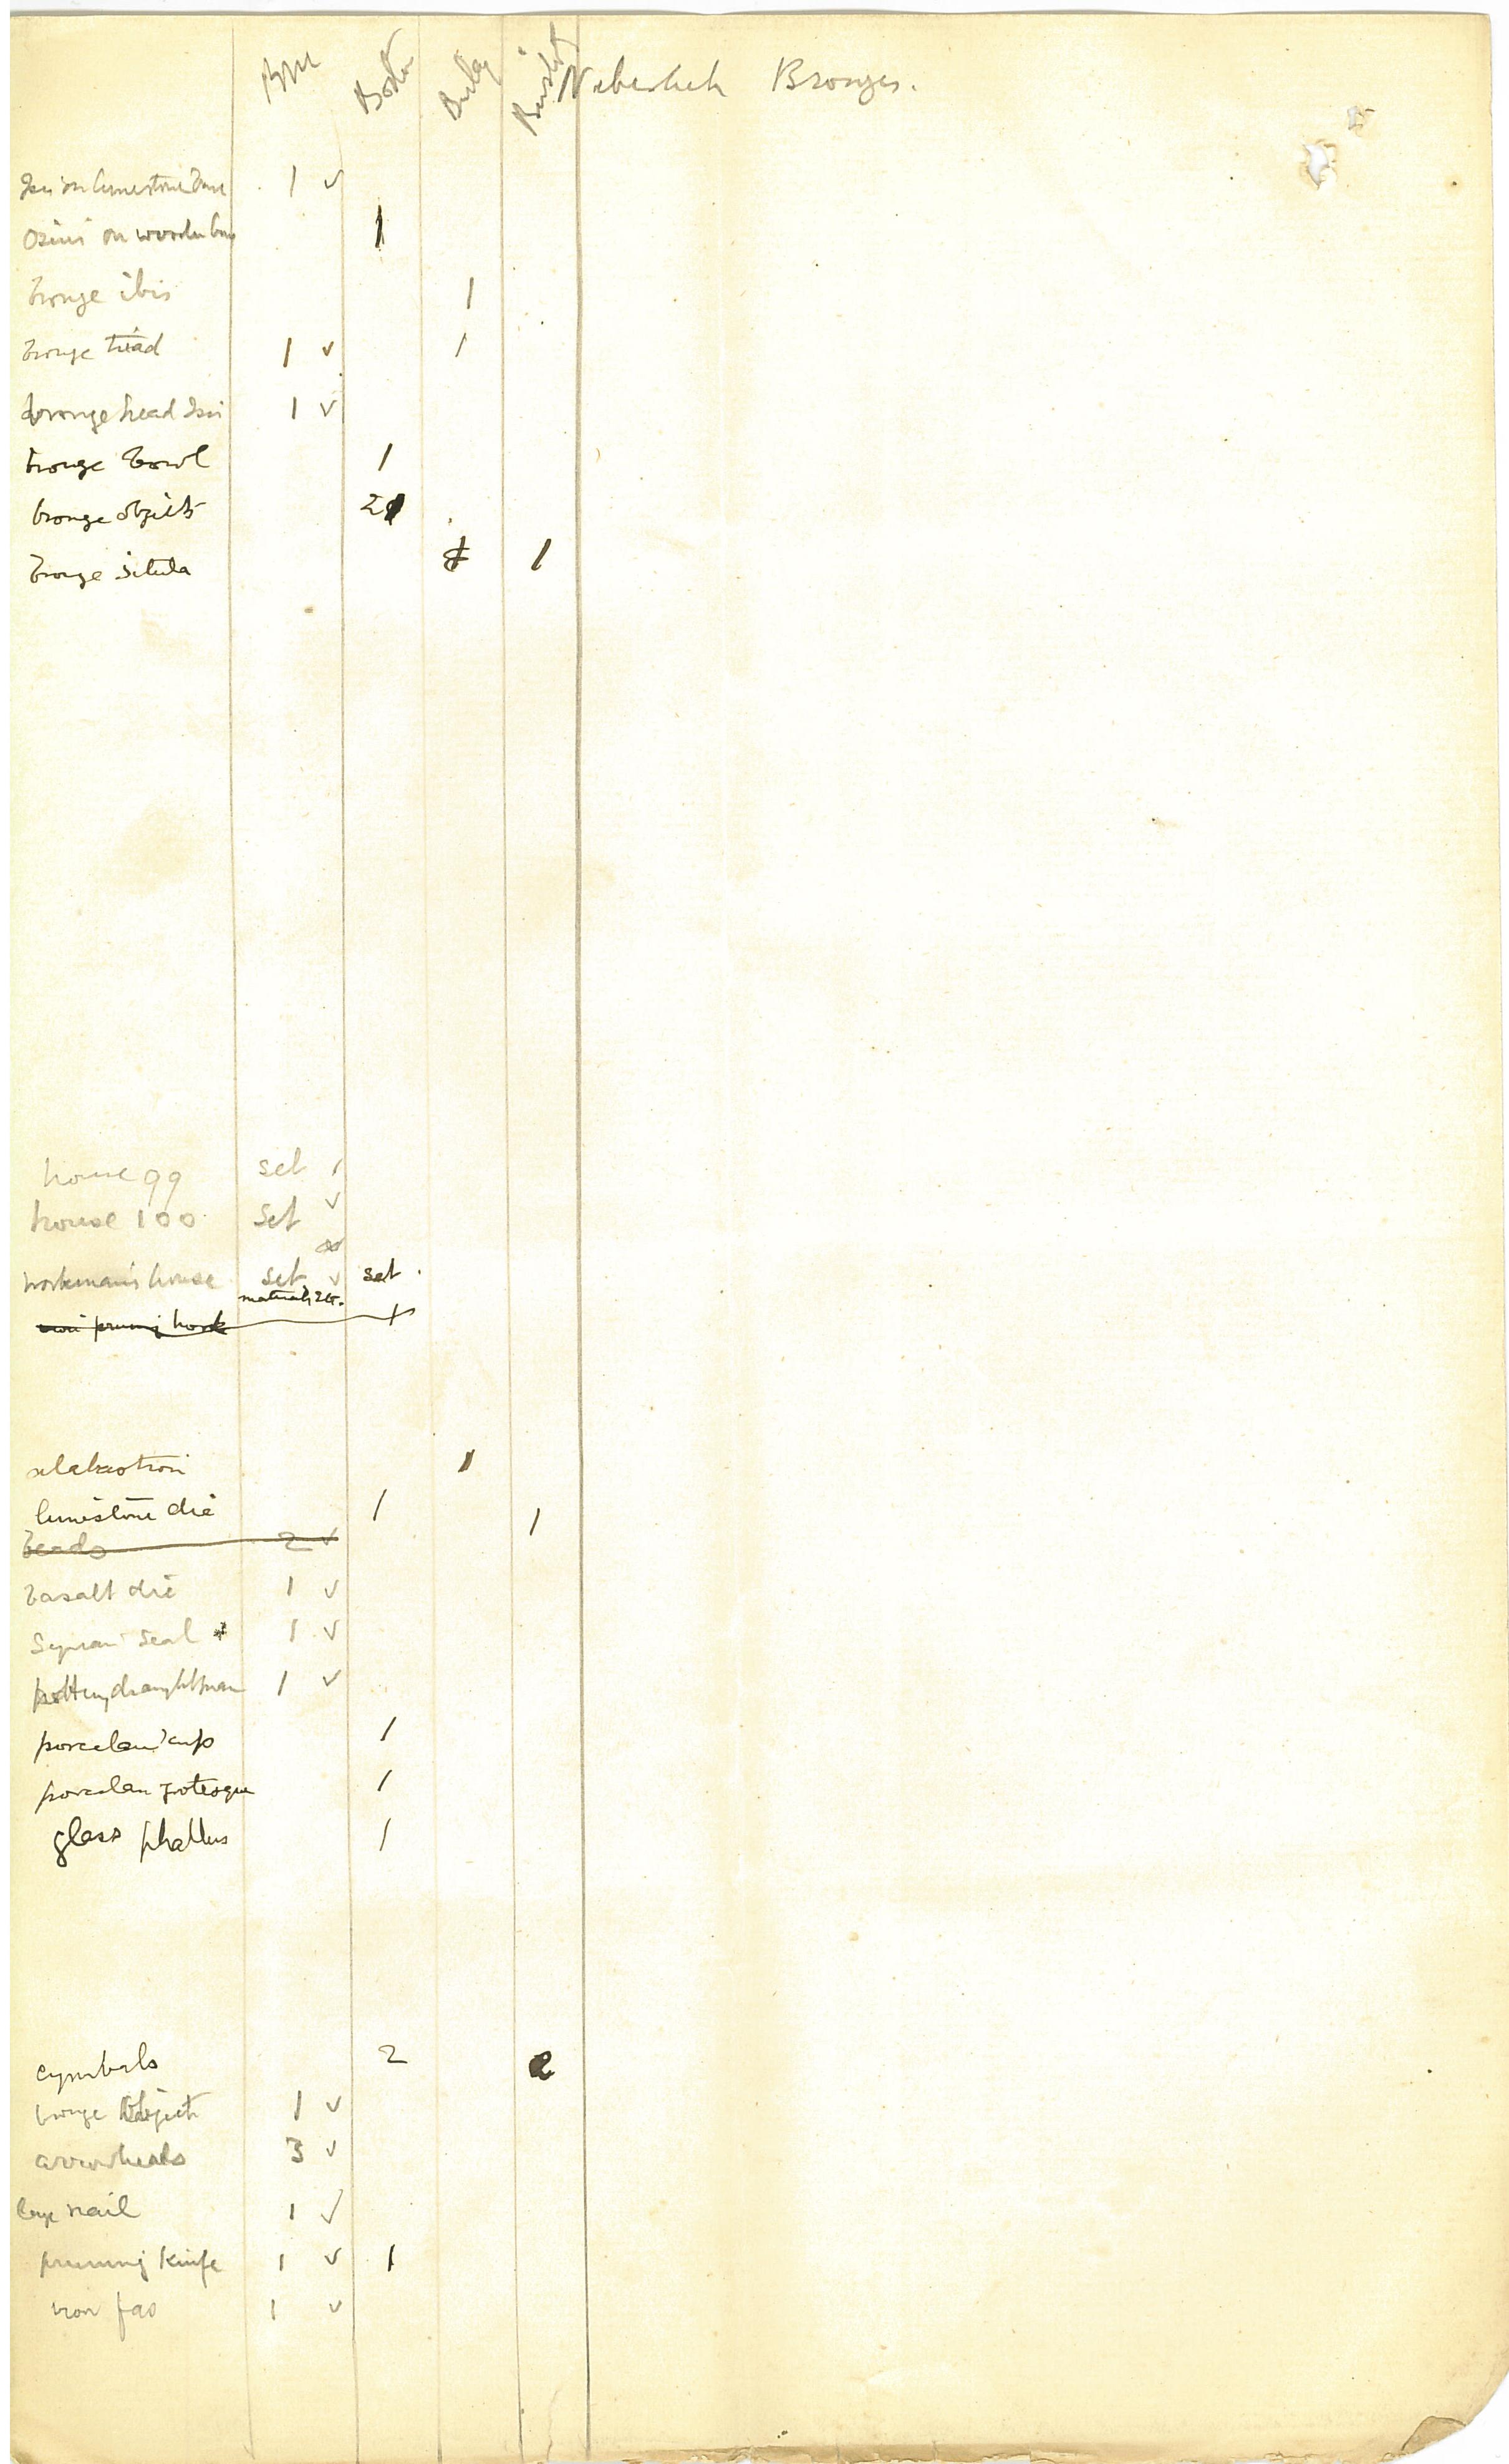 BM Boston Bulaq Bristol Nebesheh Bronzes.
Isis on limestone base 1 ✓
Osiris on wooden base 1
bronze ibis 1
bronze triad 1 ✓ 1
bronze head Isis 1 ✓
bronze bowl 1
bronze objects 2
bronze situla 1
house 99 set /
house 100 set ✓
workman's house set ✓ set
materials &c.
iron pruning hook
alabastron 1
limestone die 1 1
beads 2 ✓
basalt die 1 ✓
Syrian seal 1 ✓
pottery draughtsman 1 ✓
porcelain cup 1
porcelain grotesque 1
glass phallus 1
cymbals 2 2
bronze object 1 ✓
arrowheads 3 ✓
large nail 1 ✓
pruning knife 1 ✓ 1
iron fas 1 ✓